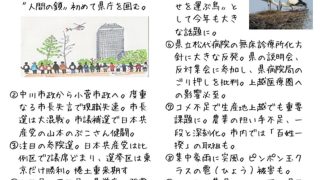 "人間の鎖"初めて県庁を囲む。
②中川市政から小菅市政へ。度重
なる市長失言で現職失速。市長
選は大混戦。市議補選で日本共
産党の山本のぶこさん健闘。
③注目の参院選。日本共産党は比
例区で2議席どまり、選挙区は東
京だけ勝利。捲土重来期す
せを運ぶ鳥」と
して今年も大き
な話題に。
⑥県立松代病院の無床診療所化方
針に大きな反発。県の説明会、
反対集会に参加し、県病院局の
ごり押しを批判。上越医療圏へ
の影響必至。
⑦コメ不足で生産地上越でも重要
課題に。農業の担い手不足、一
段と深刻化。市内では「百姓一
揆」の取組も。
⑧集中豪雨に突風。ピンポン玉ク
ラスの雹（ひょう）被害も。